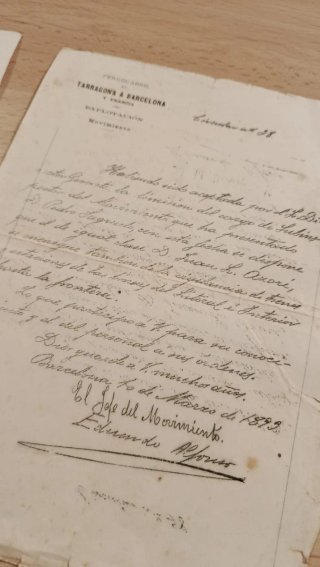 FERROCARRIL
DE
TARRAGONA Á BARCELONA
Y FRANCIA
EXPLOTACIÓN
Movimiento
Circular nº 38
Habiendo sido aceptada por el Sr. Di-
rector Gerente la dimisión del cargo de
del Movimiento que ha presentado
D. Pedro con esta fecha se dispone
que el de igual clase D. Juan
se encargue también de la de trenes
estaciones de las líneas del Litoral é Interior
hasta la frontera.
Lo que participo á V. para su conoci-
miento y el del personal á sus órdenes.
Dios guarde á V. muchos años.
Barcelona 10 de Marzo de 1893
El Jefe del Movimiento.
Eduardo